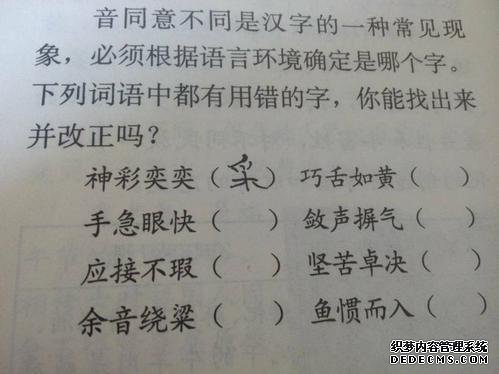 音同意不同是汉字的一种常见现
象，必须根据语言环境确定是哪个字。
下列词语中都有用错的字，你能找出来
并改正吗？
神彩奕奕（采） 巧舌如黄（ ）
手急眼快（ ） 敛声摒气（ ）
应接不瑕（ ） 坚苦卓决（ ）
余音绕粱（ ） 鱼惯而入（ ）
织梦内容管理系统
DEDECMS.COM